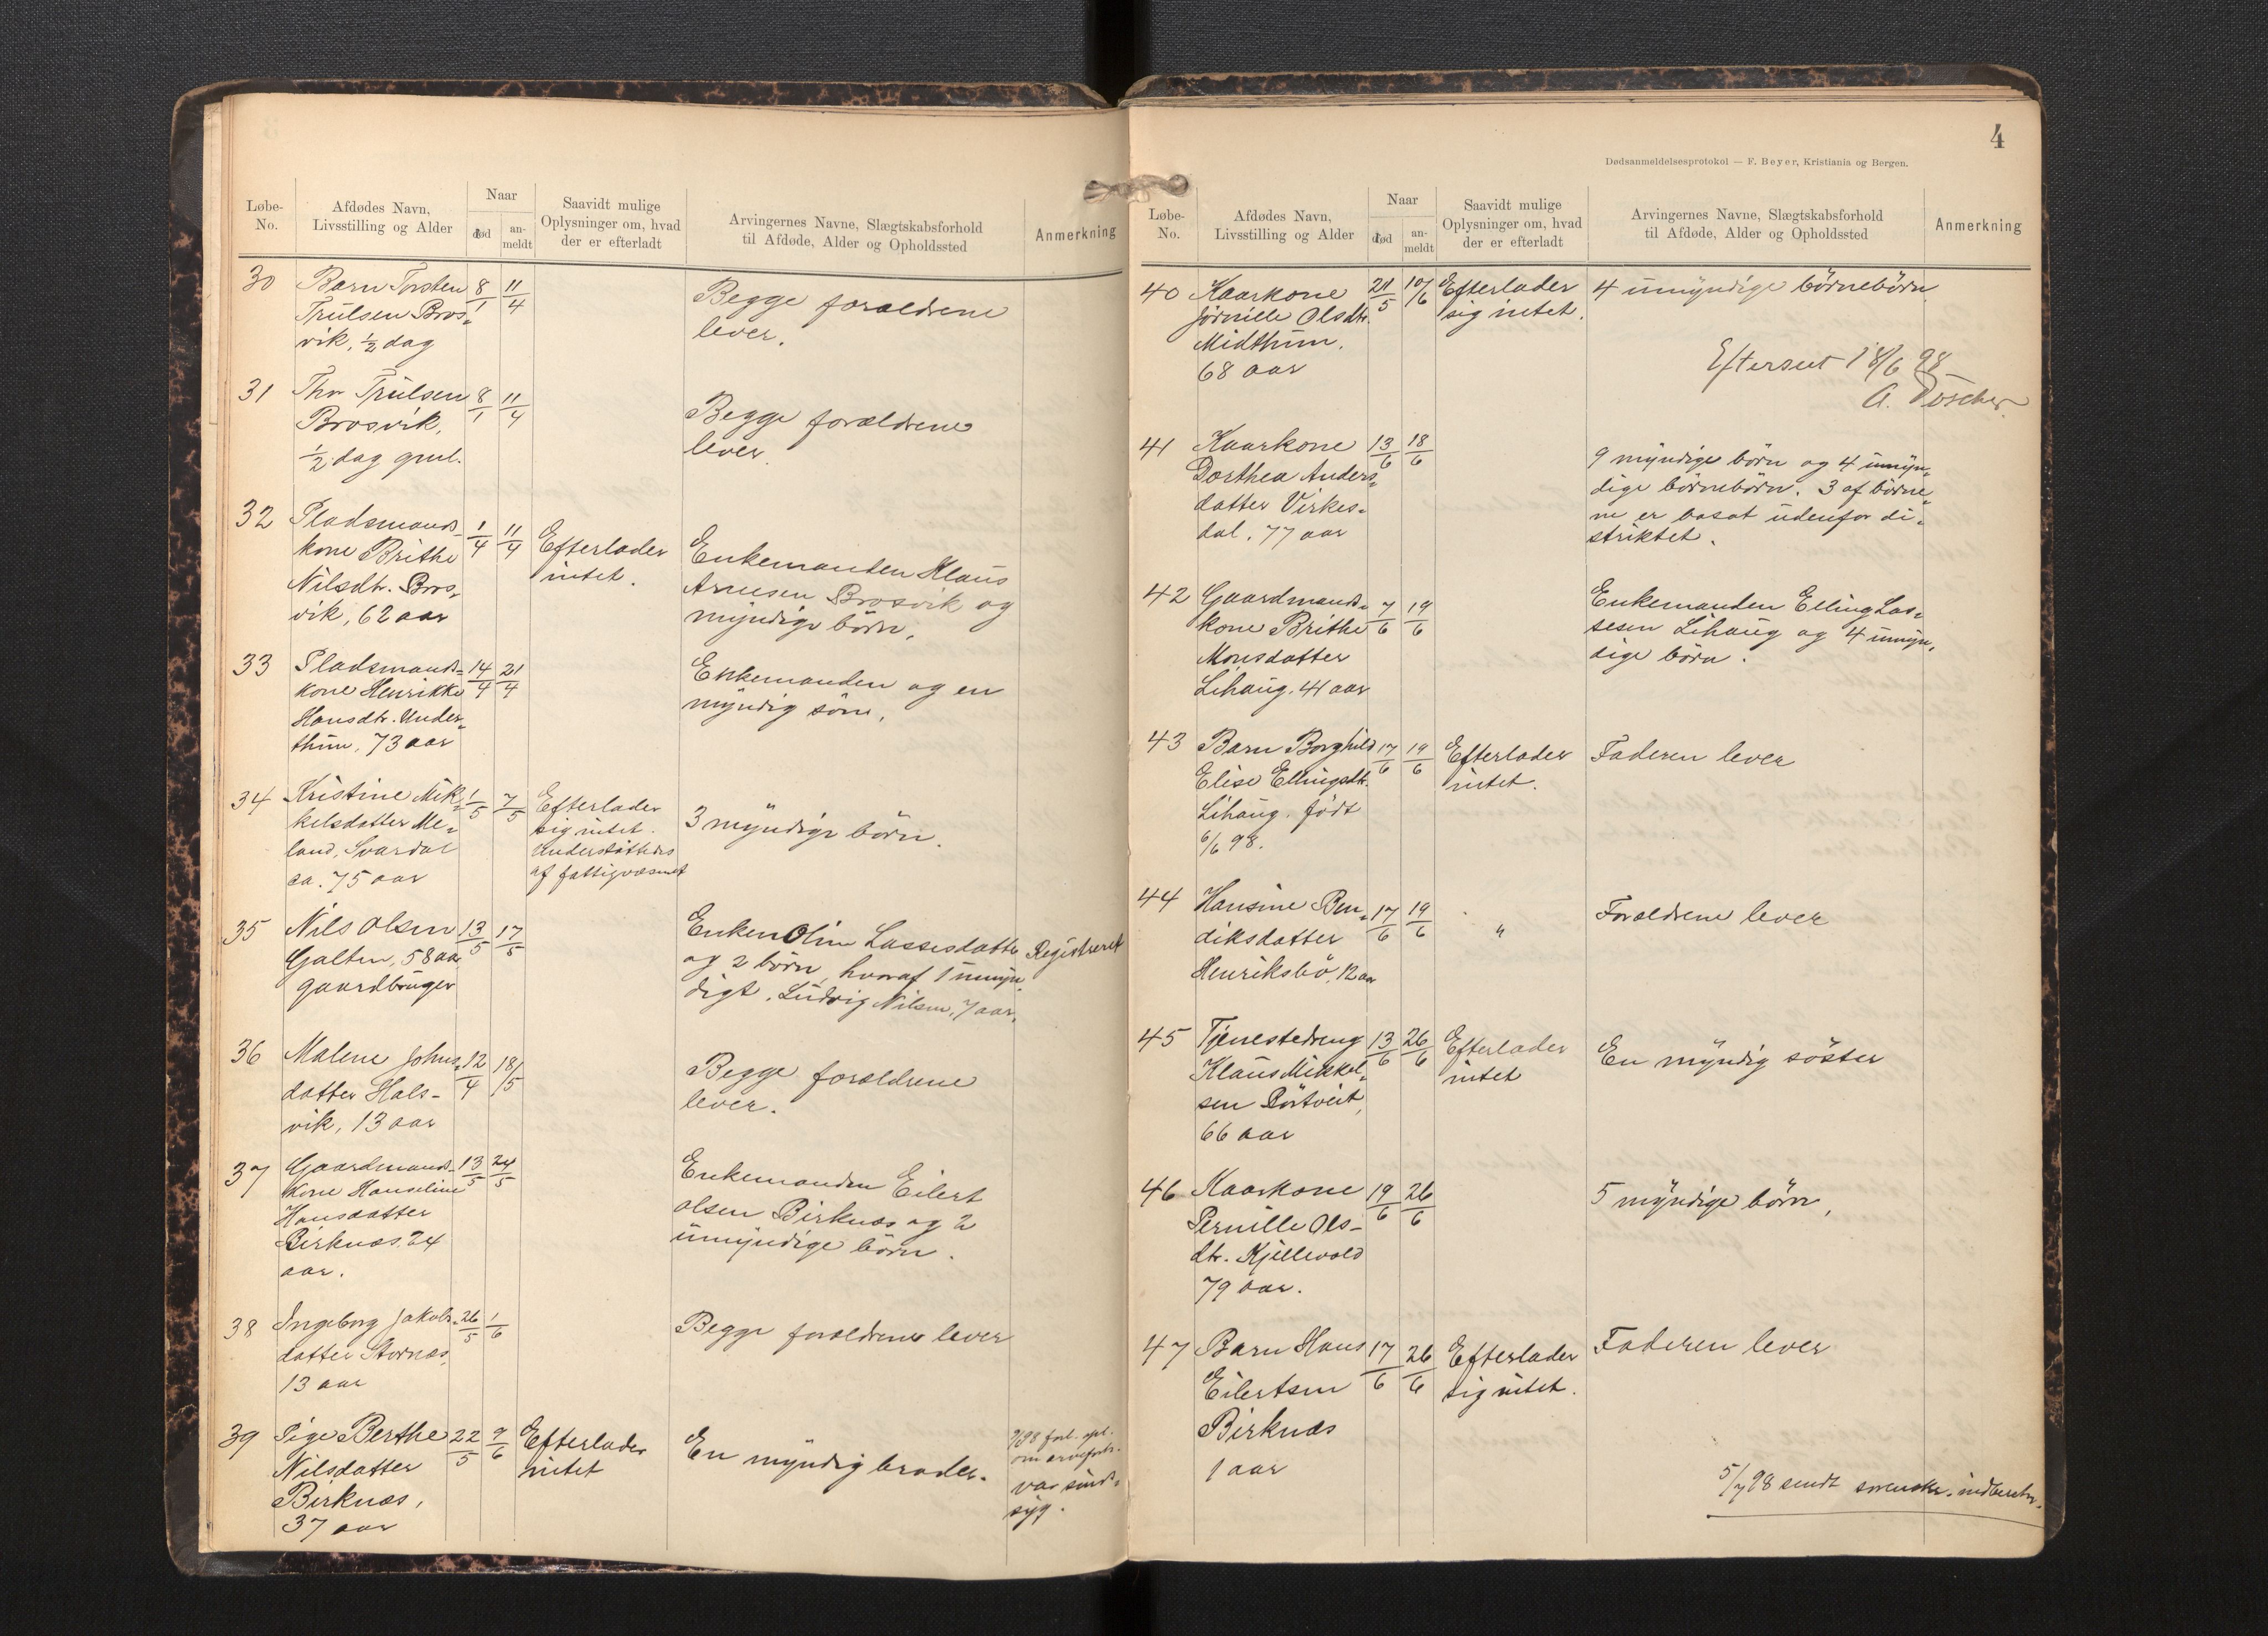 Løbe-
No.
Afdødes Navn,
Livsstilling og Alder
Naar
død
an-
meldt
Saavidt mulige
Oplysninger om, hvad
der er efterladt
Arvingernes Navne, Slægtskabsforhold
til Afdøde, Alder og Opholdssted
Anmerkning
30
Barn Torsten
Trulsen Bros-
vik, ½ dag
8/1
11/4
Begge forældrene
lever.
31
Thor Trulsen
Brosvik,
½ dag gml.
8/1
11/4
Begge forældrene
lever.
32
Pladsmands-
kone Brithe
Nilsdtr. Bros-
vik, 62 aar
1/4
11/4
Efterlader
intet.
Enkemanden Klaus
Arnesen Brosvik og
myndige börn.
33
Pladsmands-
kone Henrikke
Hansdtr. Under-
thun, 73 aar
14/4
21/4
Enkemanden og en
myndig sön.
34
Kristine Mik-
kelsdatter Me-
land, Svardal
ca. 75 aar
1/5
7/5
Efterlader
sig intet.
Understöttedes
af fattigvæsnet
3 myndige börn.
35
Nils Olsen
Galten, 58 aar
gaardbruger
13/5
17/5
Enken Oline Lassesdatter
og 2 börn, hvoraf 1 umyn-
digt, Ludvig Nilsen, 7 aar.
Registreret
36
Malene Johns-
datter Hals-
vik, 13 aar
12/4
18/5
Begge forældrene
lever.
37
Gaardmands-
kone Hanseline
Hansdatter
Birknæs, 24
aar.
13/5
24/5
Enkemanden Eilert
Olsen Birknæs og 2
umyndige börn.
38
Ingeborg Jakobs-
datter Stornæs,
13 aar
26/5
1/6
Begge forældrene lever
39
Pige Berthe
Nilsdatter
Birknæs,
37 aar
22/5
9/6
Efterlader
intet
En myndig broder.
var sinds-
syg.
4
Dødsanmeldelsesprotokol — F. Beyer, Kristiania og Bergen.
Løbe-
No.
Afdødes Navn,
Livsstilling og Alder
Naar
død
an-
meldt
Saavidt mulige
Oplysninger om, hvad
der er efterladt
Arvingernes Navne, Slægtskabsforhold
til Afdøde, Alder og Opholdssted
Anmerkning
40
Kaarkone
Jörnille Olsdtr.
Midthun.
68 aar
21/5
10/6
Efterlader
sig intet.
4 umyndige börnebörn
Efterseet 18/6 98
A.
41
Kaarkone
Dorthea Anders-
datter Virkes-
dal. 77 aar
13/6
18/6
9 myndige börn og 4 umyn-
dige börnebörn. 3 af börne-
ne er bosat udenfor di-
striktet.
42
Gaardmands-
kone Brithe
Monsdatter
Lihaug. 44 aar
7/6
19/6
Enkemanden Elling Las-
sesen Lihaug og 4 umyn-
dige börn.
43
Barn Borghild
Elise Ellingsdtr.
Lihaug. födt
6/6 98.
17/6
19/6
Efterlader
intet.
Faderen lever
44
Hansine Ben-
diksdatter
Henriksbö, 12 aar
17/6
19/6
"
Forældrene lever
45
Tjenestedreng
Klaus Mikkel-
sen Börtveit,
66 aar
13/6
26/6
Efterlader
intet
En myndig söster
46
Kaarkone
Pernille Ols-
dtr. Kjellevold
79 aar.
19/6
26/6
5 myndige börn,
47
Barn Hans
Eilertsen
Birknæs
1 aar
17/6
26/6
Efterlader
sig intet.
Faderen lever
5/7 98 sendt